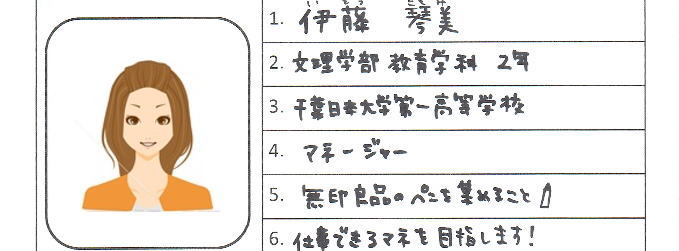 1. 伊藤 琴美
2. 文理学部 教育学科 2年
3. 千葉日本大学第一高等学校
4. マネージャー
5. 無印良品のペンを集めること
6. 仕事できるマネを目指します!